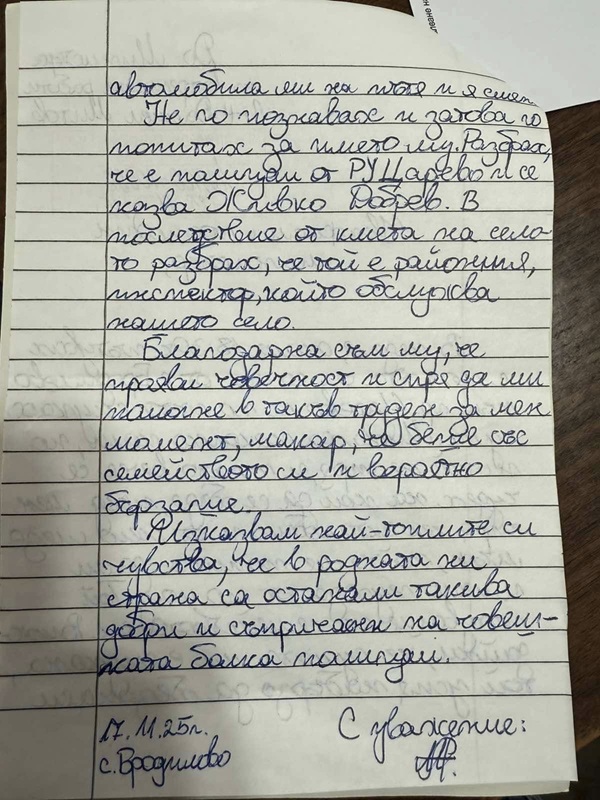 автомобила ми на пътя и я смен
Не го познавах и затова го
попитах за името му. Разбрах,
че е полицай от РУ Царево и се
казва Живко Добрев. В
последствие от кмета на село-
то разбрах, че той е районния,
инспектор, който обслужва
нашето село.
Благодарна съм му, че
прояви човечност и спря да ми
помогне в такъв труден за мен
момент, макар, че беше със
семейството си и вероятно
бързаше.
Изказвам най-топлите си
чувства, че в родната ни
страна са останали такива
добри и съпричастни на човеш-
ката болка полицаи.
17.11.25г.
С уважение:
с. Бродилово